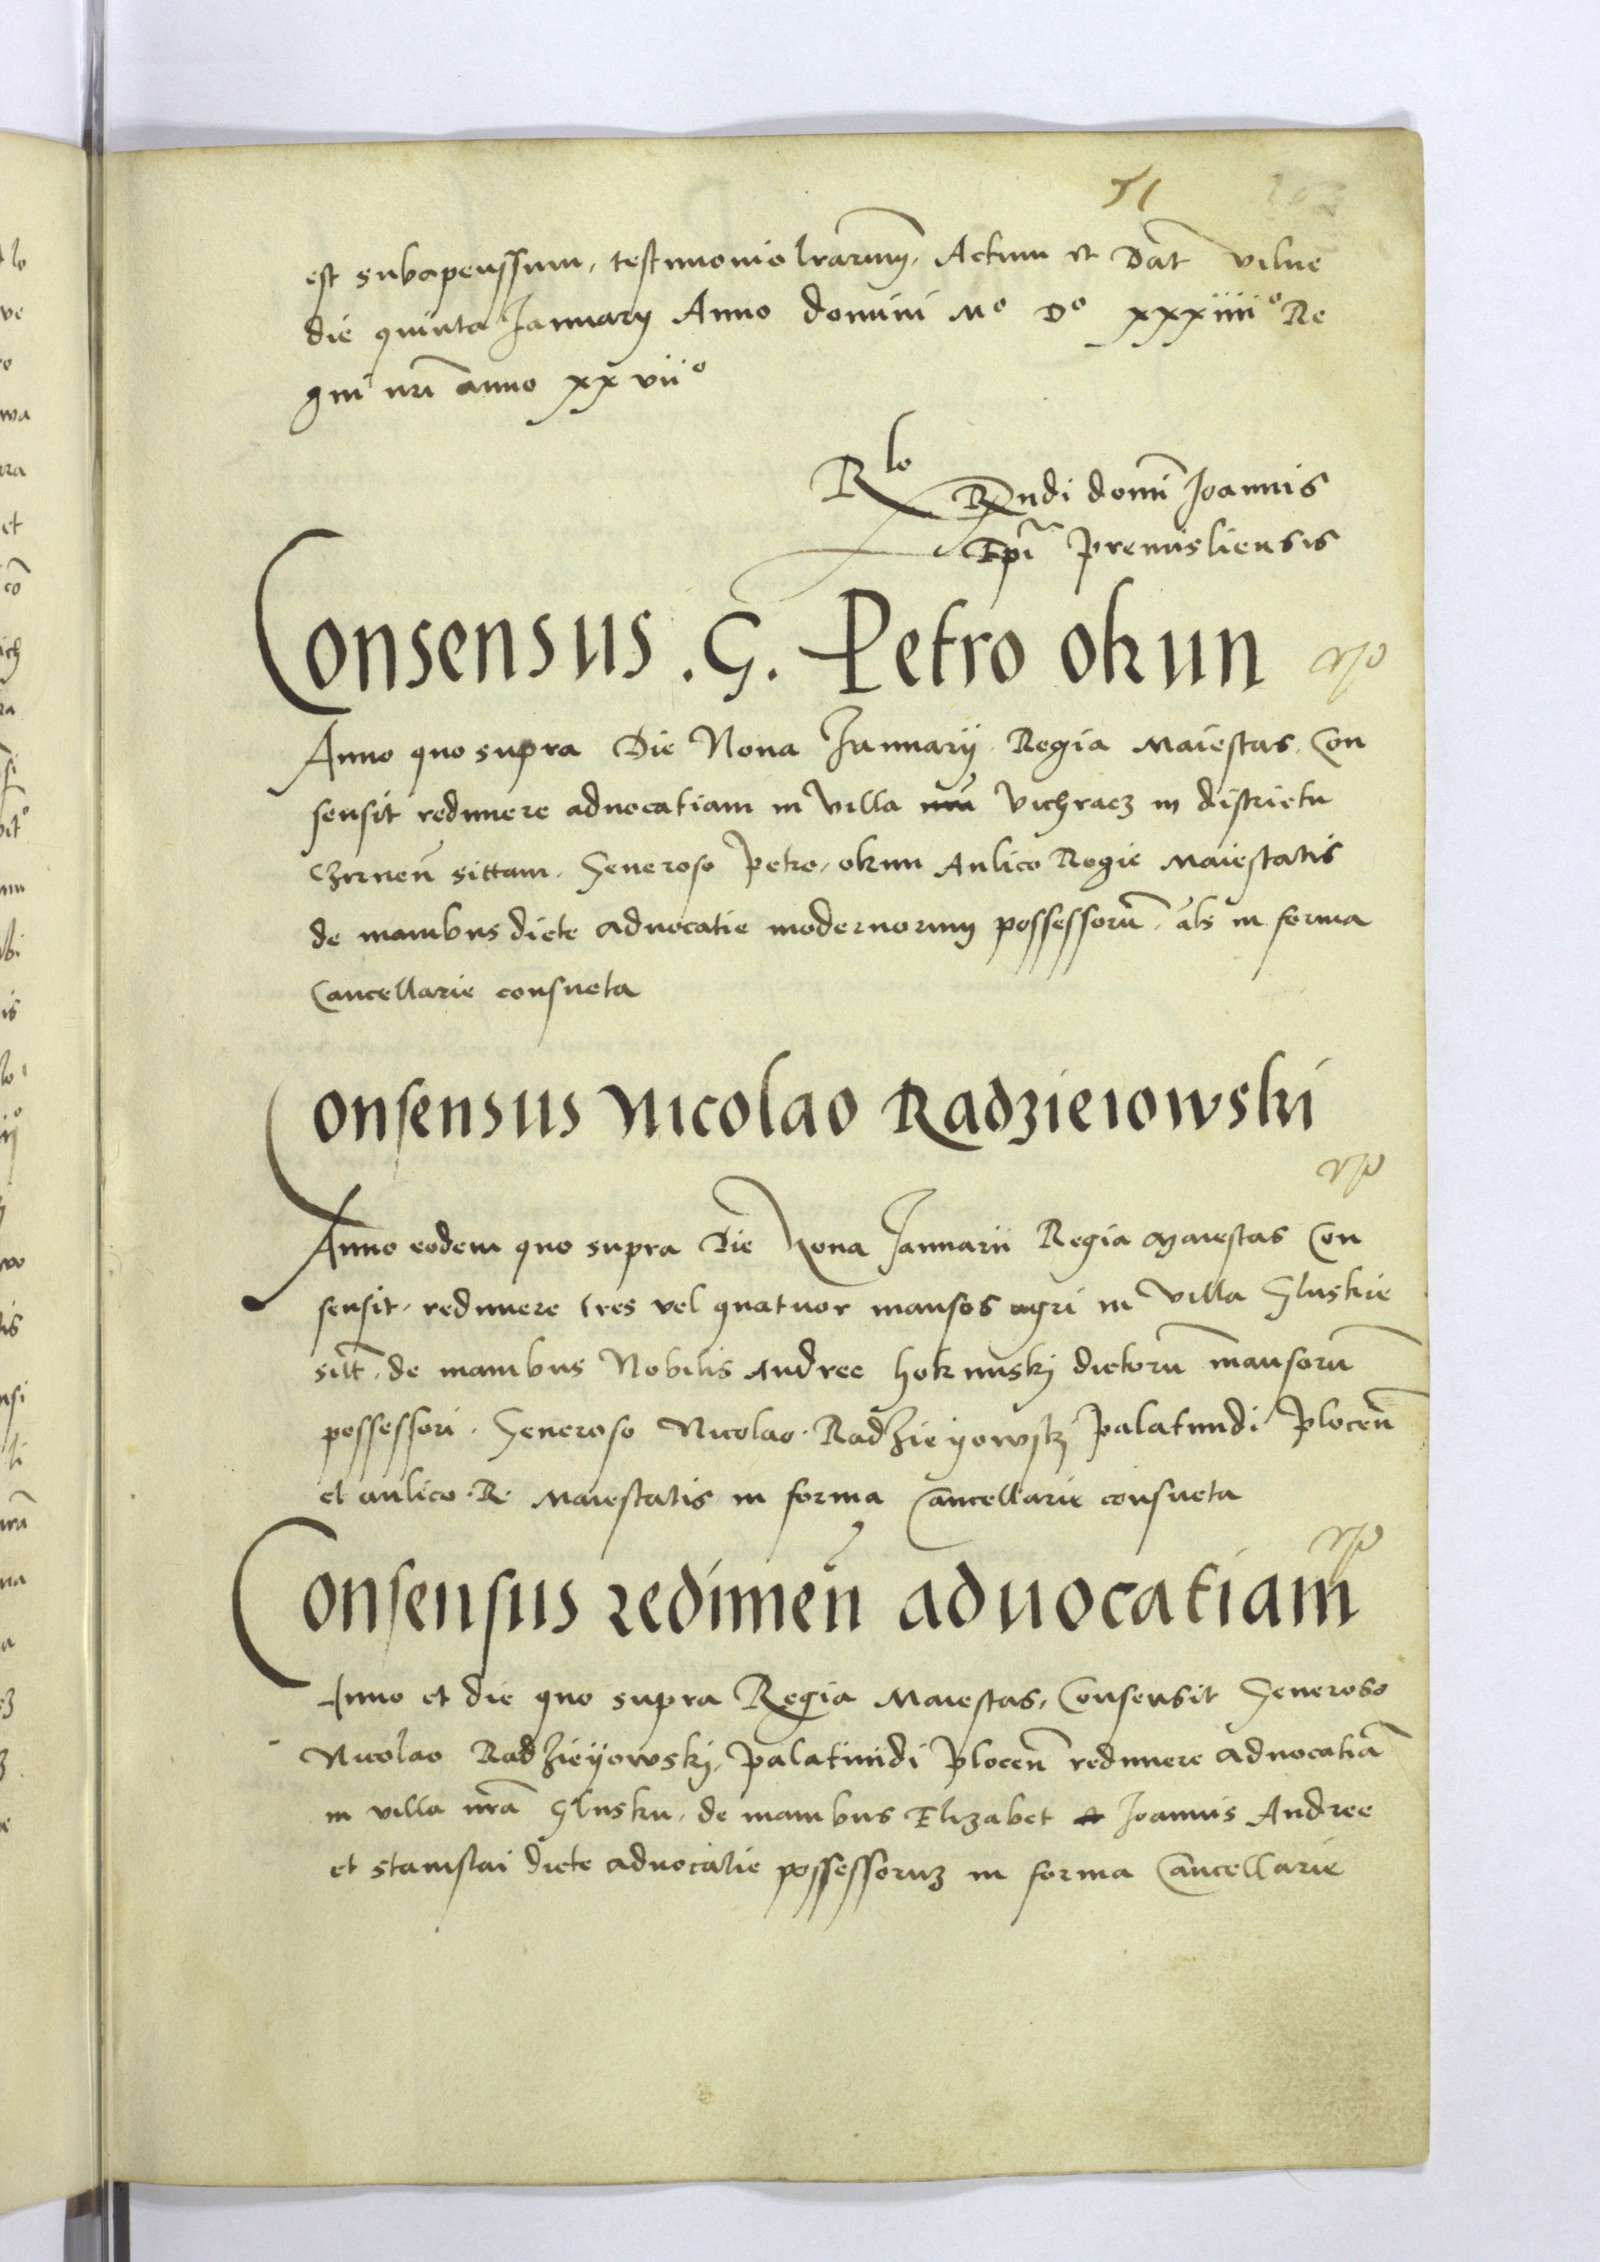 51
est subapenssum, testimonio lrarum, Actum et Dat Vilne
die quinta Januarij Anno domini Mo Do xxxiiiio Re
gni nri anno xxviio
Rlo Rndi domi Joannis
Epi premisliensis
Consensus .G. Petro okun
Anno quo supra Die Nona Januarij Regia Maiestas Con
sensit redimere aduocatiam in Villa Vichracz in districtu
Czrnen sittam, Generoso Petro, okun Aulico Regie Maiestatis
de manibus dicte aduocatie modernorum possessoru, als in forma
Cancellarie consueta
Consensus Nicolao Radzieiowski
Anno eodem quo supra Die Nona Januarii Regia Maiestas Con
sensit, redimere tres vel quatuor mansos agri in Villa Gluskie
sitt, de manibus Nobilis Andree dictoru mansoru
possessori, Generoso Nicolao Radzieyowskj Palatinidi Plocen
et aulico R Maiestatis in forma Cancellarie consueta
Consensus redimen aduocatiam
Anno et die quo supra Regia Maiestas, Consensit Generoso
Nicolao Radzieyowskj, Palatinidi Plocen redimere aduocatia
in villa nra Glusku, de manibus Elizabet Joannis Andree
et Stanislai dicte aduocatie possessorum in forma Cancellarie